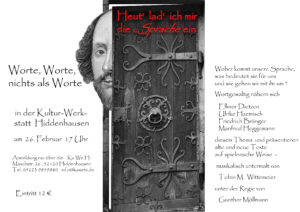 Heut' lad' ich mir
die „Sprache ein
Worte, Worte,
nichts als Worte
in der Kultur-Werk-
statt Hiddenhausen
am 26. Februar 17 Uhr
Anmeldung nur über die
Eintritt 12 €
Woher kommt unsere Sprache,
was bedeutet sie für uns
und wie gehen wir mit ihr um ?
Wortgewaltig nähern sich
Elinor Dietzon
Ulrike
Friedrich
Manfred Heggemann
diesem Thema und präsentieren
alte und neue Texte
auf spielerische Weise -
musikalisch untermalt von
Tobin M. Wittemeier
unter der Regie von
Günther Möllmann